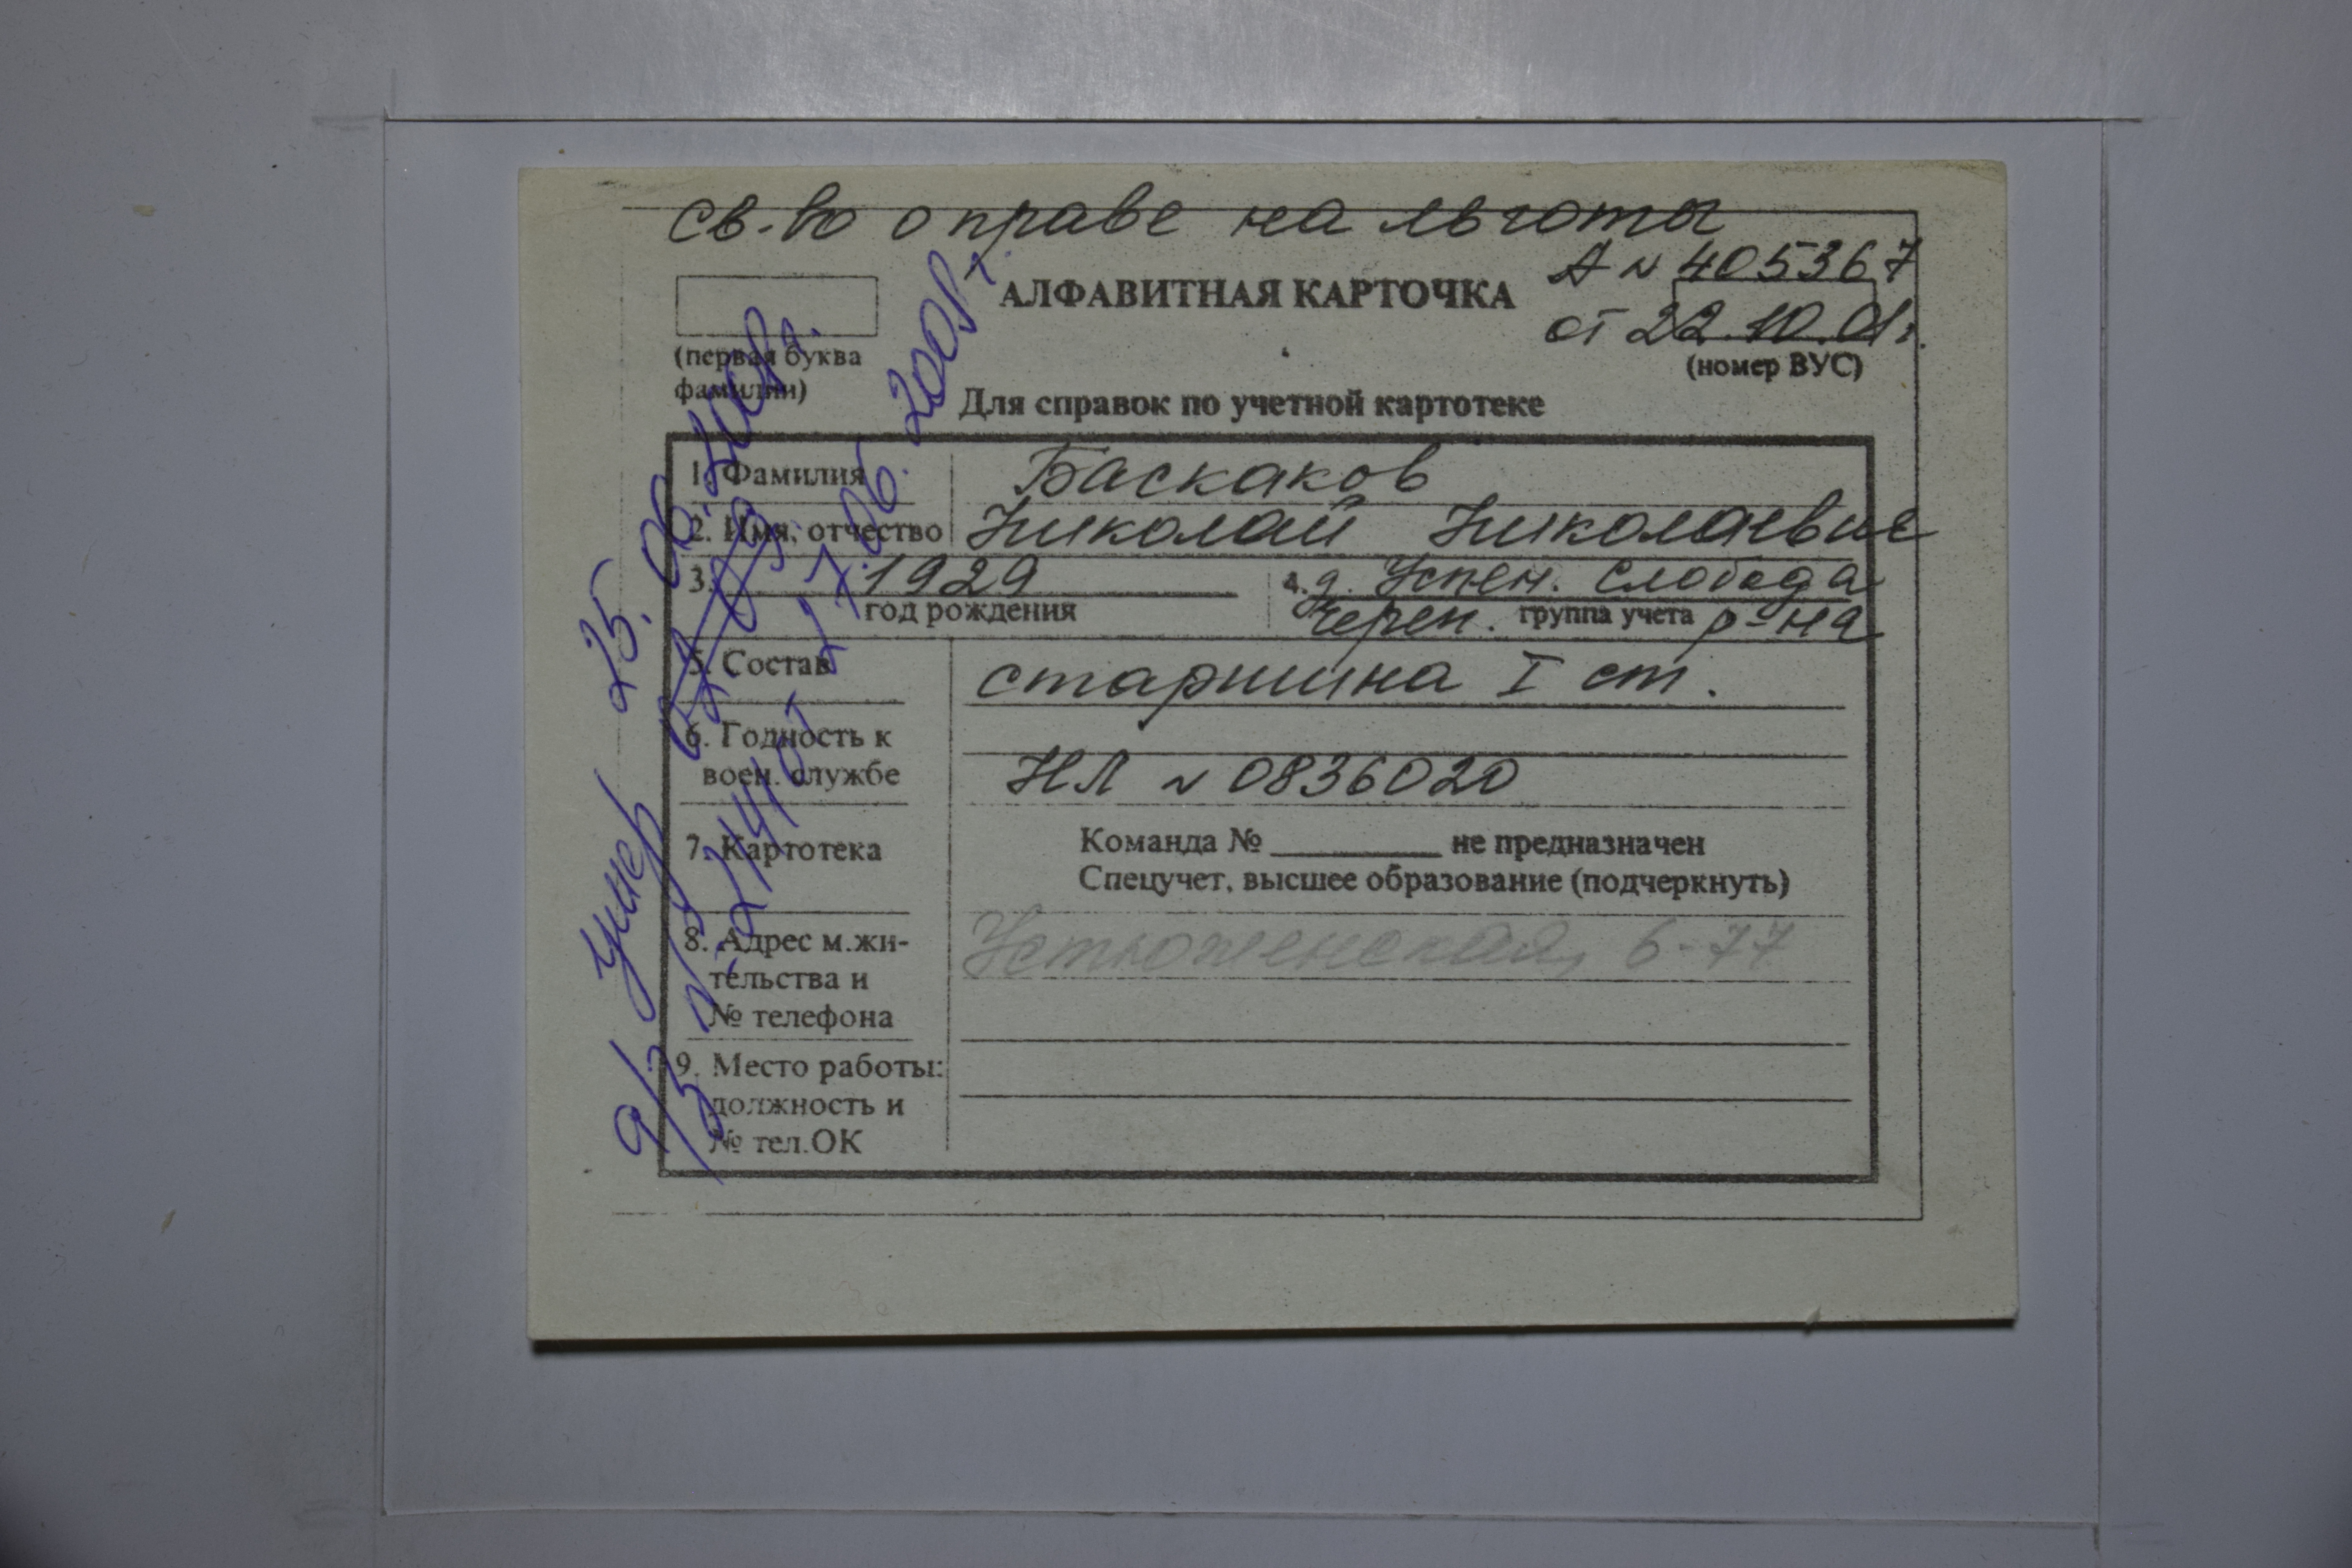 св-во о праве на льготы
А № 405367
АЛФАВИТНАЯ КАРТОЧКА
от 22.10.01г.
(первая буква
фамилии)
(номер ВУС)
Для справок по учетной картотеке
1. Фамилия Баскаков
2. Имя, отчество Николай Николаевич
3. 1929 4. д. Успен. Слобода
год рождения группа учета
Череп. р-на
5. Состав старшина I ст.
6. Годность к
воен. службе НЛ № 0836020
7. Картотека Команда № не предназначен
Спецучет, высшее образование (подчеркнуть)
8. Адрес м.жи-
тельства и
№ телефона
Устюженская, 6-77
9. Место работы:
должность и
№ тел.ОК
Умер 25.06.2008г.
27.06.2008г.